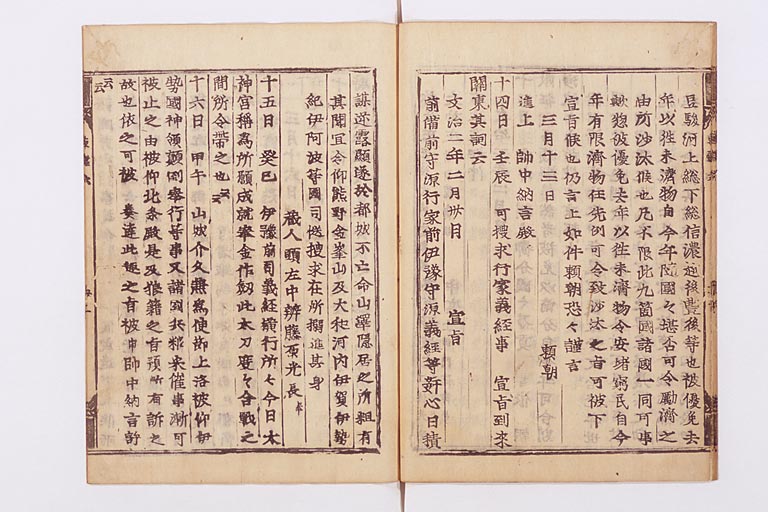 豆駿河上総下総信濃越後豊後等也被優免去
年以往未済物自今年随國々堪否可令勵済之
由所沙汰候也凡不限此九箇國諸國一同可事
歟惣被優免去年以往未済物令安堵窮民自今
年有限済物任先例可令致沙汰之旨可被下
宣旨候也仍言上如件頼朝恐々謹言
三月十三日 頼朝
進上 帥中納言殿
十四日 壬辰 可捜求行家義経事 宣旨到来
關東其詞云
文治二年二月卅日 宣旨
前備前守源行家前伊豫守源義経等姧心日積
謀逆露顕遂於都城不亡命山澤隠居之所粗有
其聞宜令仰熊野金峯山及大和河内伊賀伊勢
紀伊阿波等國司慥捜求在所搦進其身
蔵人頭左中辨藤原光長奉
十五日 癸巳 伊豫前司義経横行所々今日太
神宮稱為所願成就奉金作釼此太刀度々合戦之
間所令帯之也云々
十六日 甲午 山城介久兼為使節上洛被仰伊
勢國神領顛倒奉行等事又諸國兵粮米催事漸可
被止之由被仰北条殿是及狼藉之旨預所有訴之
故也依之可被 奏達此趣之旨被申帥中納言許
云々